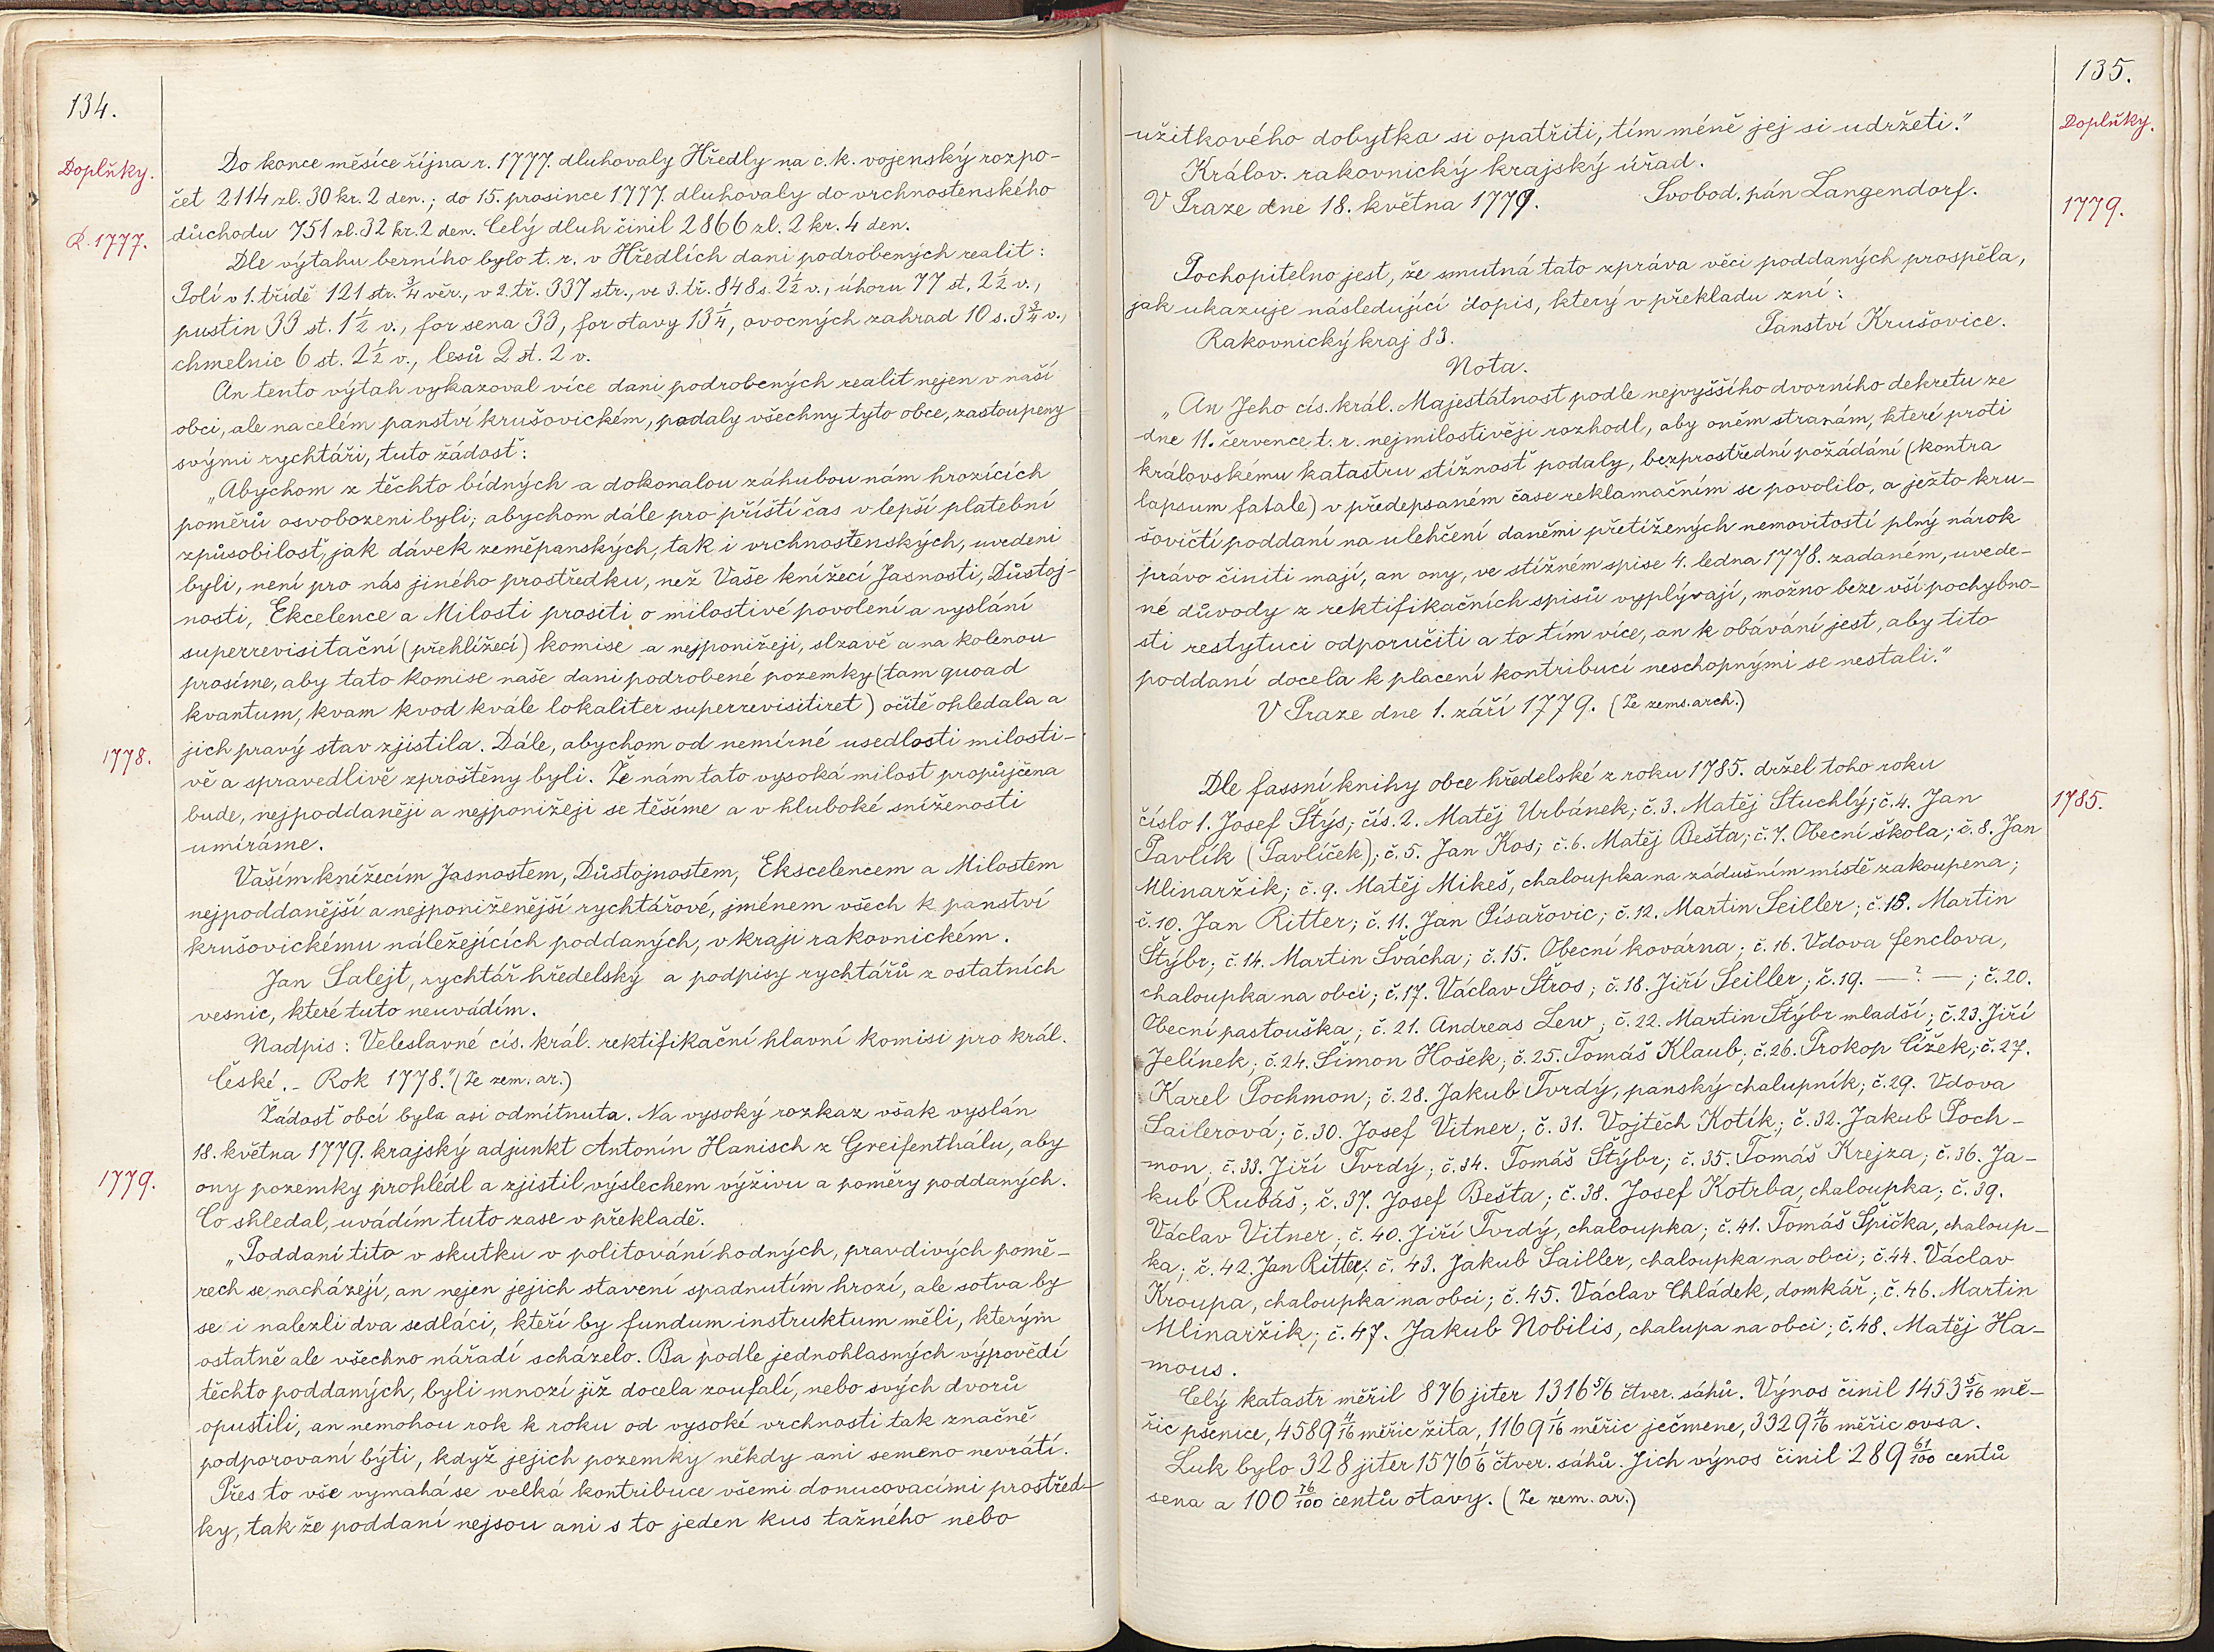 134.
Doplňky.
Do konce měsíce října r. 1777. dluhovaly Hředly na c. k. vojenský rozpo-
čet 2114 zl. 30 kr. 2 den.; do 15. prosince 1777. dluhovaly do vrchnostenského
R. 1777.
důchodu 751 zl. 32 kr. 2 den. Celý dluh činil 2866 zl. 2 kr. 4 den.
Dle výtahu berního bylo t. r. v Hředlích dani podrobených realit:
Polí v 1. třídě 121 str. 3/4 věr., v 2. tř. 337 str., ve 3. tř. 848 s. 2 1/2 v., úhoru 77 st. 2 1/2 v.,
pustin 33 st. 1 1/2 v., for sena 33, for otavy 13 1/4, ovocných zahrad 10 s. 3 3/4 v.,
chmelnic 6 st. 2 1/2 v., lesů 2 st. 2 v.
An tento výtah vykazoval více dani podrobených realit nejen v naší
obci, ale na celém panství krušovickém, podaly všechny tyto obce, zastoupeny
svými rychtáři, tuto žádosť:
„Abychom z těchto bídných a dokonalou záhubou nám hrozících
poměrů osvobozeni byli; abychom dále pro příští čas v lepší platební
způsobilosť, jak dávek zeměpanských, tak i vrchnostenských, uvedeni
byli, není pro nás jiného prostředku, než Vaše knížecí Jasnosti, Důstoj-
nosti, Ekcelence a Milosti prositi o milostivé povolení a vyslání
superrevisitační (přehlížecí) komise a nejponižeji, slzavě a na kolenou
prosíme, aby tato komise naše dani podrobené pozemky (tam quoad
kvantum, kvam kvod kvále lokaliter superrevisitiret) očitě ohledala a
1778.
jich pravý stav zjistila. Dále, abychom od nemírné usedlosti milosti-
vě a spravedlivě zproštěny byli. Že nám tato vysoká milost propůjčena
bude, nejpoddaněji a nejponižeji se těšíme a v hluboké sníženosti
umíráme.
Vaším knížecím Jasnostem, Důstojnostem, Ekscelencem a Milostem
nejpoddanější a nejponiženější rychtářové, jménem všech k panství
krušovickému náležejících poddaných, v kraji rakovnickém.
Jan Salejt, rychtář hředelský a podpisy rychtářů z ostatních
vesnic, které tuto neuvádím.
Nadpis: Veleslavné cís. král. rektifikační hlavní komisi pro král.
České. - Rok 1778." (Ze zem. ar.)
Žádosť obcí byla asi odmítnuta. Na vysoký rozkaz však vyslán
18. května 1779. krajský adjunkt Antonín Hanisch z Greifenthálu, aby
1779.
ony pozemky prohlédl a zjistil výslechem výživu a poměry poddaných.
Co shledal, uvádím tuto zase v překladě.
„Poddaní tito v skutku v politování hodných, pravdivých pomě-
rech se nacházejí, an nejen jejich stavení spadnutím hrozí, ale sotva by
se i nalezli dva sedláci, kteří by fundum instruktum měli, kterým
ostatně ale všechno nářadí scházelo. Ba podle jednohlasných výpovědí
těchto poddaných, byli mnozí již docela zoufalí, nebo svých dvorů
opustili, an nemohou rok k roku od vysoké vrchnosti tak značně
podporovaní býti, když jejich pozemky někdy ani semeno nevrátí.
Přes to vše vymahá se velká kontribuce všemi donucovacími prostřed-
ky, tak že poddaní nejsou ani s to jeden kus tažného nebo
135.
Doplňky.
užitkového dobytka si opatřiti, tím méně jej si udržeti."
Králov. rakovnický krajský úřad.
V Praze dne 18. května 1779. Svobod. pán Langendorf.
1779.
Pochopitelno jest, že smutná tato zpráva věci poddaných prospěla,
jak ukazuje následující dopis, který v překladu zní:
Rakovnický kraj 83. Panství Krušovice.
Nota.
„An Jeho cís. král. Majestátnosť podle nejvyššího dvorního dekretu ze
dne 11. července t. r. nejmilostivěji rozhodl, aby oněm stranám, které proti
královskému katastru stížnosť podaly, bezprostřední požádání (kontra
lapsum fatale) v předepsaném čase reklamačním se povolilo, a ježto kru-
šovičtí poddaní na ulehčení daněmi přetížených nemovitostí plný nárok
právo činiti mají, an ony, ve stížném spise 4. ledna 1778. zadaném, uvede-
né důvody z rektifikačních spisů vyplývají, možno beze vší pochybno-
sti restytuci odporučiti a to tím více, an k obávání jest, aby tito
poddaní docela k placení kontribucí neschopnými se nestali."
V Praze dne 1. září 1779. (Ze zems. arch.)
Dle fassní knihy obce hředelské z roku 1785. držel toho roku
1785.
číslo 1. Josef Štýs; čís. 2. Matěj Urbánek; č. 3. Matěj Stuchlý; č. 4. Jan
Pavlík (Pavlíček); č. 5. Jan Kos; č. 6. Matěj Bešta; č. 7. Obecní škola; č. 8. Jan
Mlinaržik; č. 9. Matěj Mikeš, chaloupka na zádušním místě zakoupena;
č. 10. Jan Ritter; č. 11. Jan Písařovic; č. 12. Martin Seiller; č. 13. Martin
Štýbr; č. 14. Martin Švácha; č. 15. Obecní kovárna; č. 16. Vdova fenclova,
chaloupka na obci; č. 17. Václav Štros; č. 18. Jiří Seiller; č. 19. — ? — ; č. 20.
Obecní pastouška; č. 21. Andreas Lew; č. 22. Martin Štýbr mladší; č. 23. Jiří
Jelínek; č. 24. Šimon Hošek; č. 25. Tomáš Klaub; č. 26. Prokop Čížek; č. 27.
Karel Pochmon; č. 28. Jakub Tvrdý, panský chalupník; č. 29. Vdova
Sailerová; č. 30. Josef Vitner; č. 31. Vojtěch Kotík; č. 32. Jakub Poch-
mon; č. 33. Jiří Tvrdý; č. 34. Tomáš Štýbr; č. 35. Tomáš Krejza; č. 36. Ja-
kub Rubáš; č. 37. Josef Bešta; č. 38. Josef Kotrba, chaloupka; č. 39.
Václav Vitner; č. 40. Jiří Tvrdý, chaloupka; č. 41. Tomáš Špička, chaloup-
ka; č. 42. Jan Ritter; č. 43. Jakub Sailler, chaloupka na obci; č. 44. Václav
Kroupa, chaloupka na obci; č. 45. Václav Chládek, domkář; č. 46. Martin
Mlinaržik; č. 47. Jakub Nobilis, chalupa na obci; č. 48. Matěj Ha-
mous.
Celý katastr měřil 876 jiter 1316 5/6 čtver. sáhů. Výnos činil 1453 5/16 mě-
řic pšenice, 4589 4/16 měřic žita, 1169 1/16 měřic ječmene, 3329 4/16 měřic ovsa.
Luk bylo 328 jiter 1576 1/6 čtver. sáhů. Jich výnos činil 289 61/100 centů
sena a 100 76/100 centů otavy. (Ze zem. ar.)